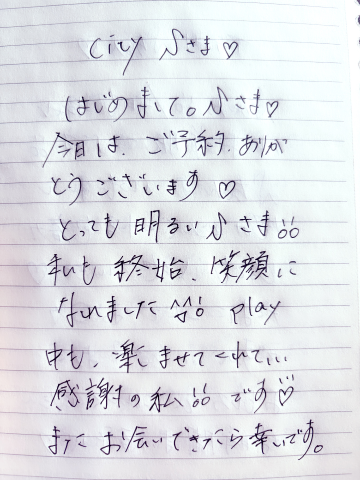 city ♪さま♡
はじめまして。♪さま♡
今日は、ご予約、ありが
とうございます♡
とっても明るい♪さま!!
私も終始、笑顔に
なれました^^!! play
中も、楽しませてくれて...
感謝の私!!です♡
またお会いできたら幸いです。